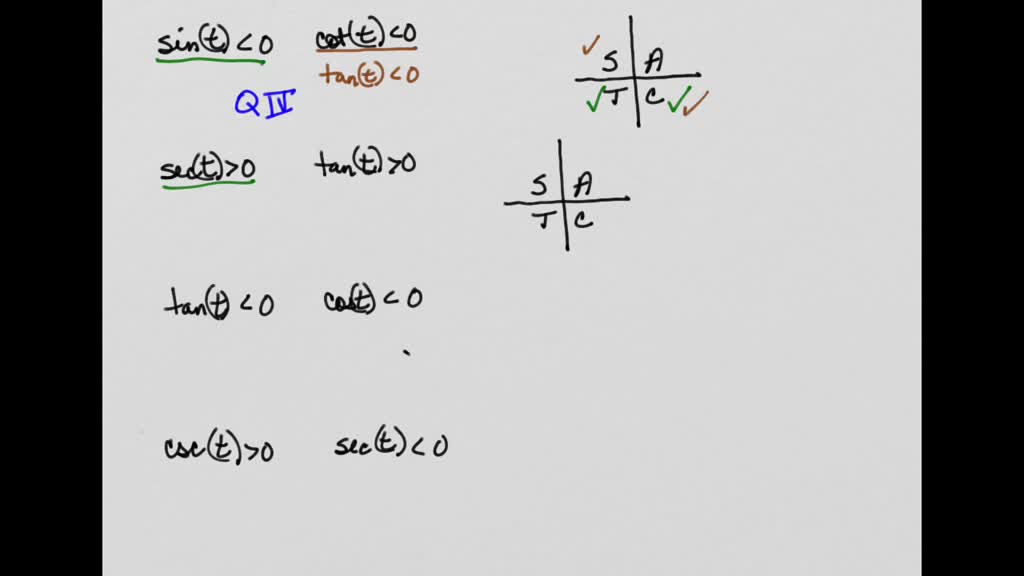 sin(t) < 0 cot(t) < 0
tan(t) < 0
S A
T C
Q IV
sec(t) > 0 tan(t) > 0
S A
T C
tan(t) < 0 cos(t) < 0
csc(t) > 0 sec(t) < 0